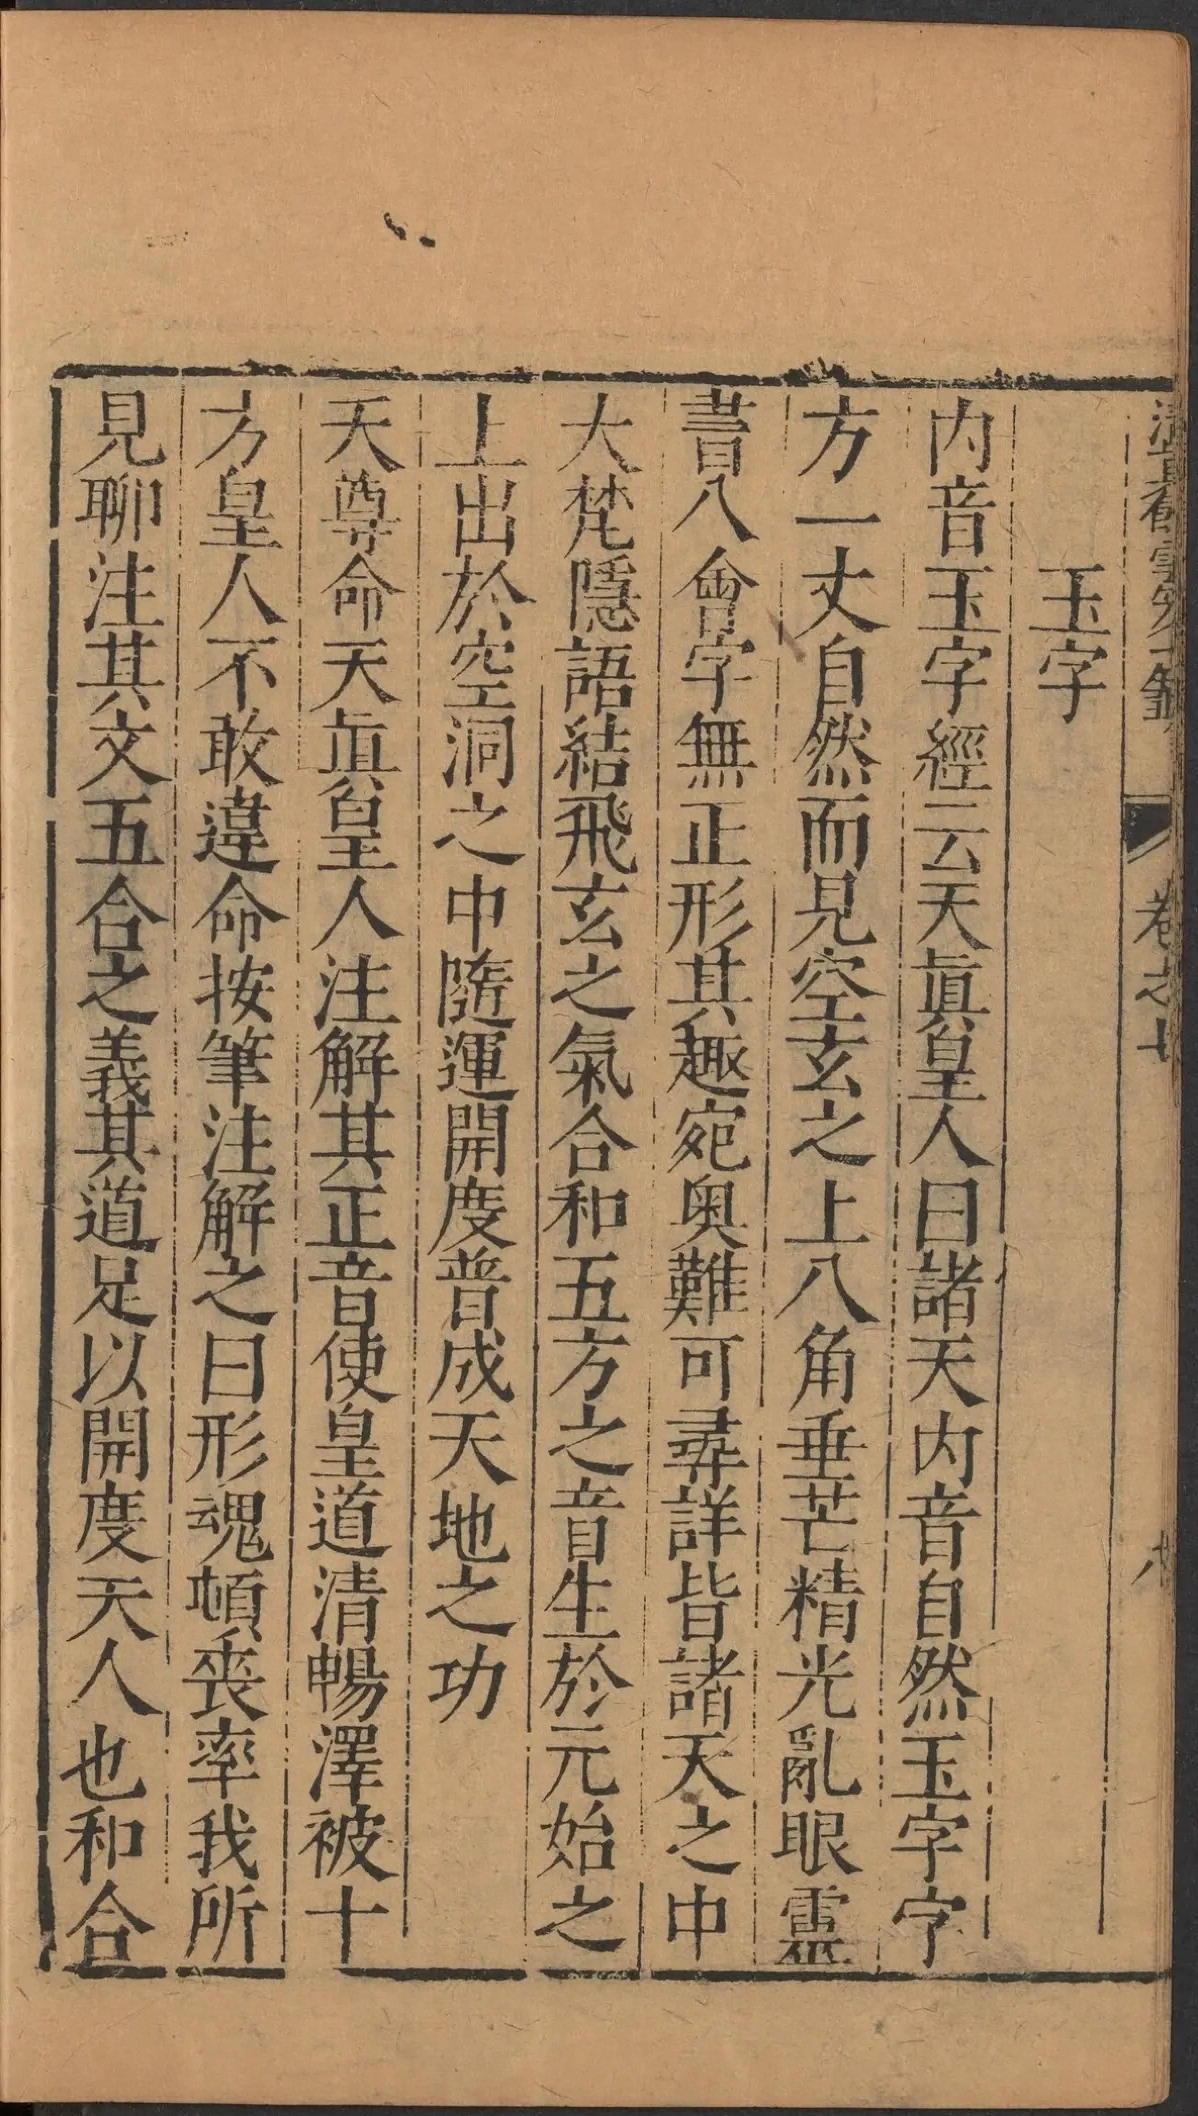 清眞館雲笈七籤 卷之七 八
玉字
内音玉字經云天眞皇人曰諸天内音自然玉字字
方一丈自然而見空玄之上八角垂芒精光亂眼靈
書八會字無正形其趣宛奥難可尋詳皆諸天之中
大梵隱語結飛玄之氣合和五方之音生於元始之
上出於空洞之中隨運開度普成天地之功
天尊命天眞皇人注解其正音使皇道清暢澤被十
方皇人不敢違命按筆注解之曰形魂頓喪率我所
見聊注其文五合之義其道足以開度天人也和合